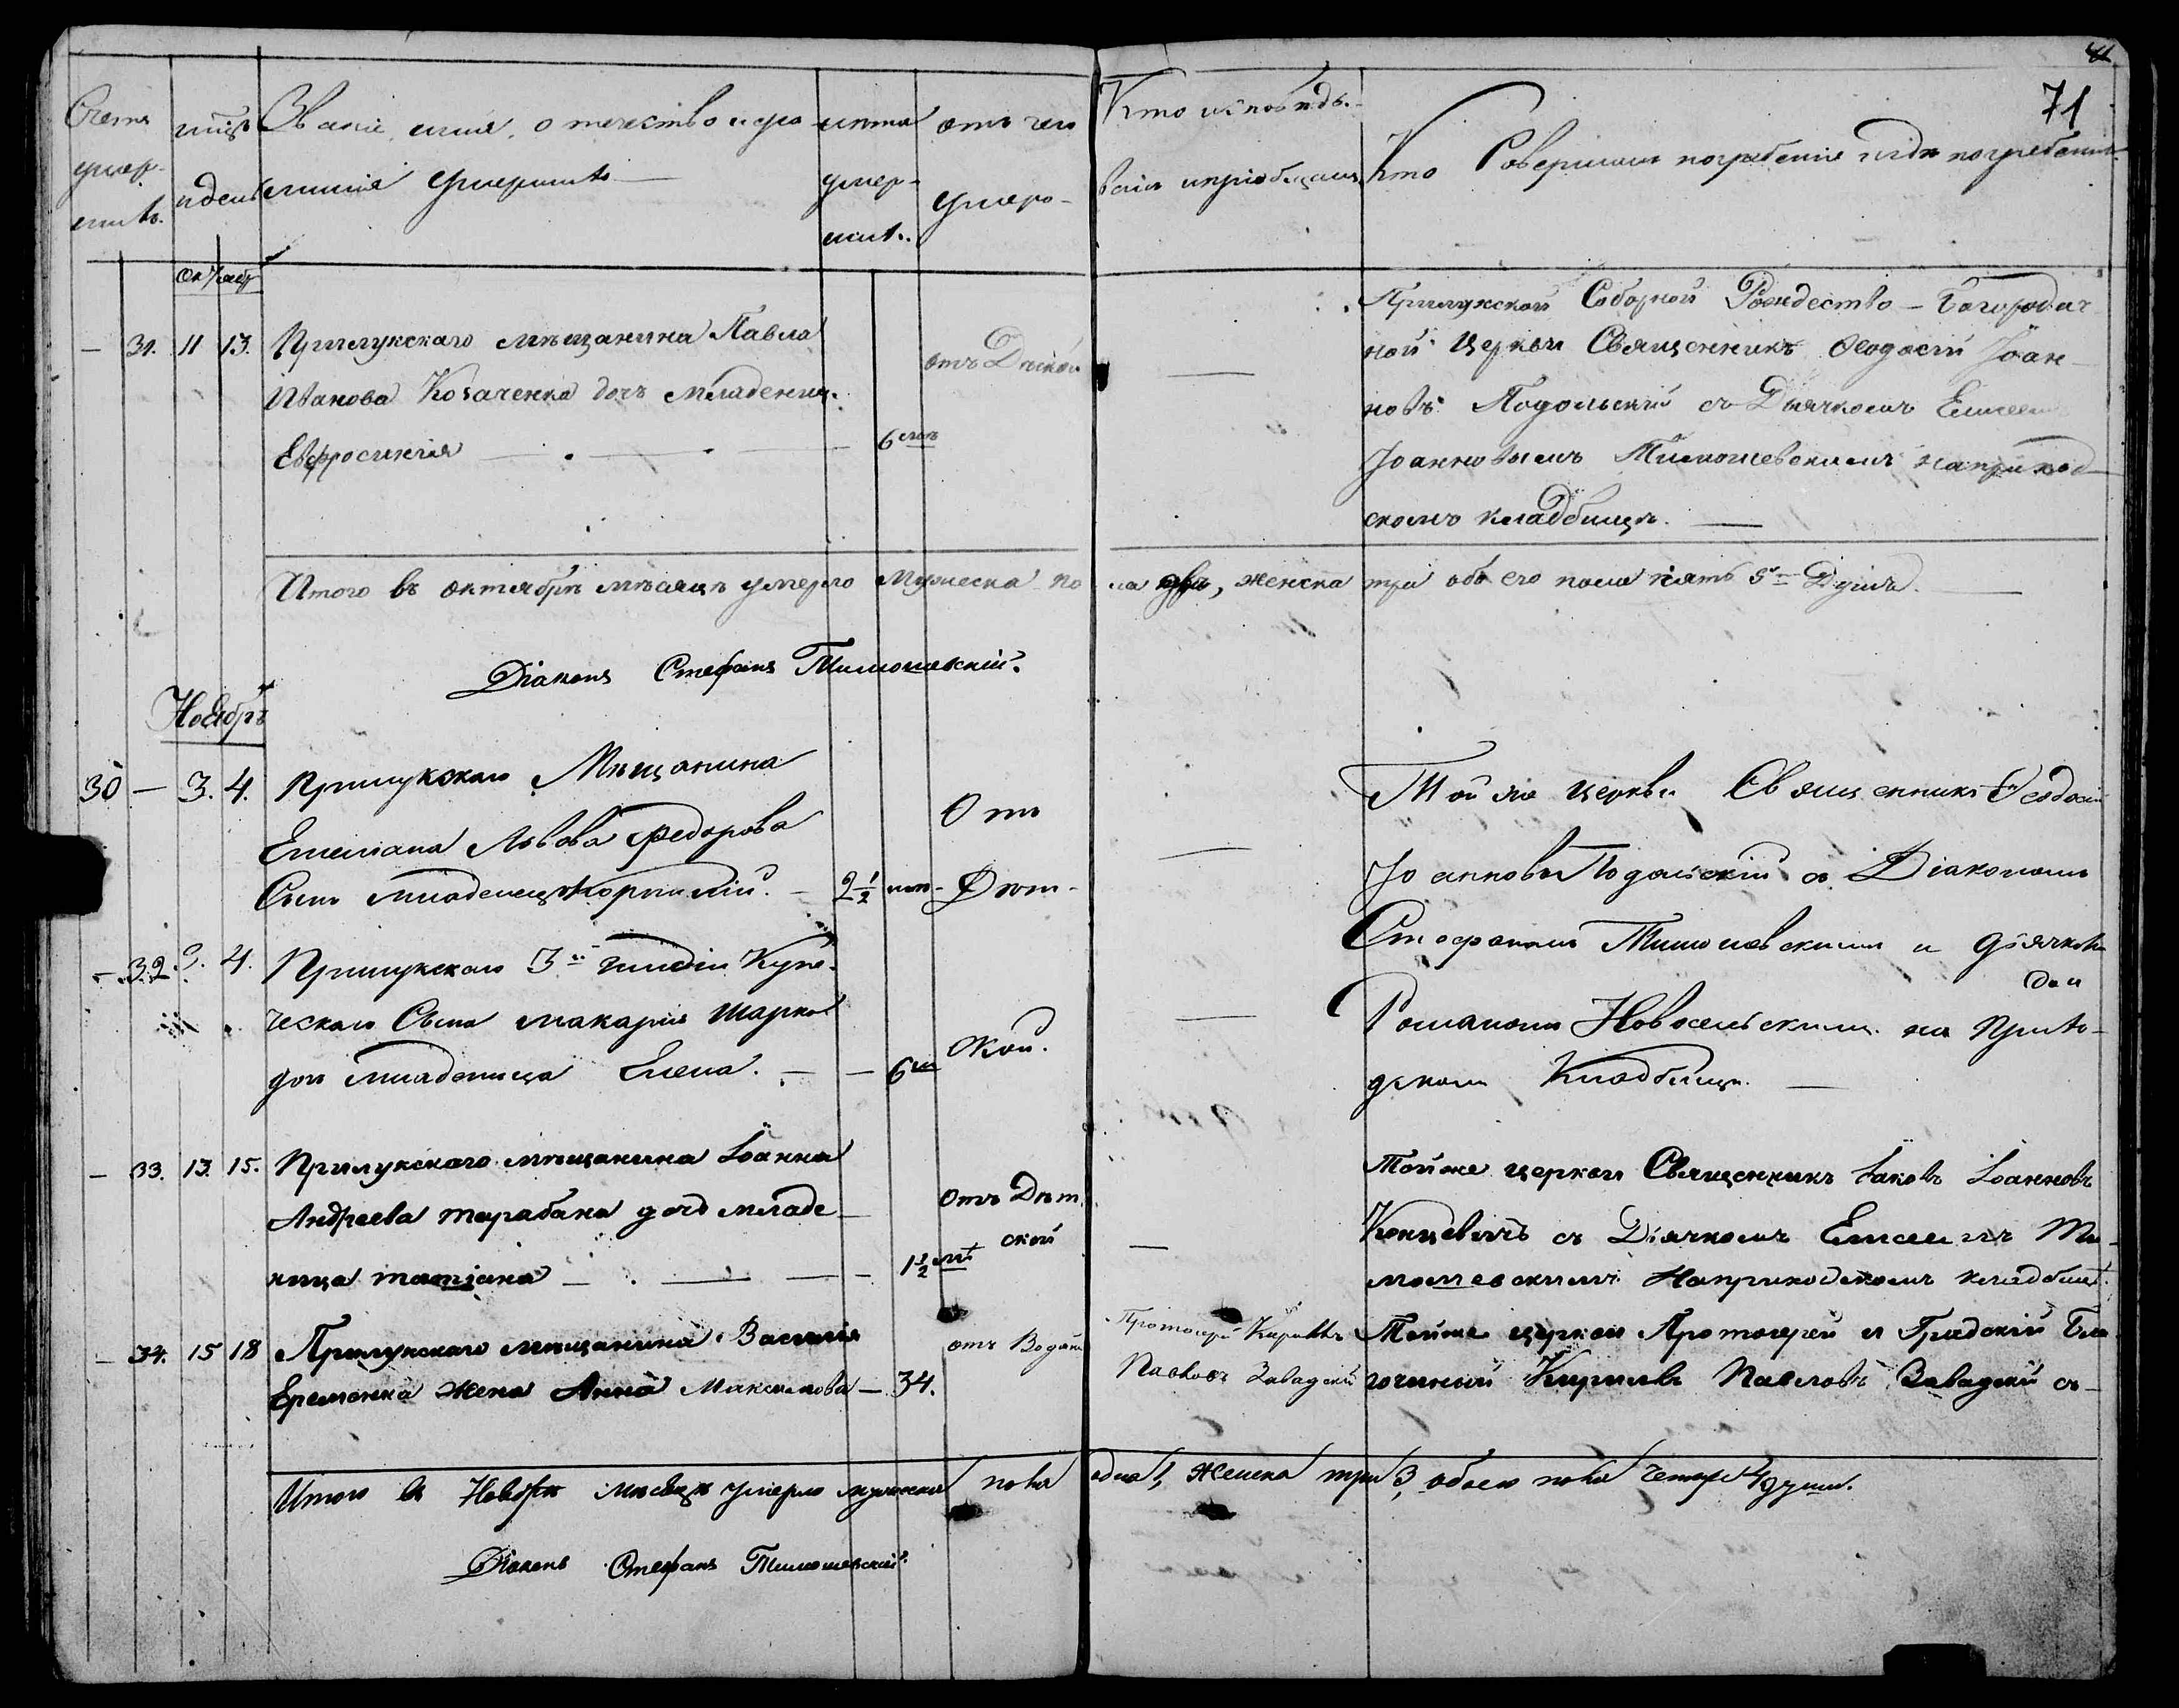 71
Счетъ умер-шихъ.
мѣсяцъ и день
Званіе, имя, отечество и фа-
милія умершихъ
лѣта умер-шихъ.
отъ чего умеръ
Кто исповѣды-
валъ и пріобщалъ
Кто Совершилъ погребеніе и гдѣ погребены
Октябр
— 31. 11 13. Прилукскаго мѣщанина Павла
Иванова Козаченка дочь младениц.
Евфросинія — 6 мѣ
отъ Дѣтской
Прилукской Соборной Рождество-Богородич
ной Церкви Священникъ Феодосій Іоан-
новъ Подольскій съ Дьячкомъ Елисеемъ
Іоанновымъ Тимошевскимъ на приход-
скомъ кладбищѣ. —
Итого въ октябрѣ мѣсяцѣ умерло Мужеска пола два, женска три обоего пола пять 5ть Душъ.
Діаконъ Стефанъ Тимошевскій.
Ноябрь
30 — 3. 4. Прилукскаго Мѣщанина
Емеліана Львова Федорова
Сынъ младенецъ Корнилій. — 2½ лѣт-
Отъ
Дѣт-
Той же Церкви Священникъ Феодосій
Іоанновъ Подольскій съ Діакономъ
Стефаномъ Тимошевскимъ и дьячкомъ
— 32. 3. 4. Прилукскаго 3й гилдіи Купе-
ческаго Сына Макарія Шарко
доч младеница Елена. — 6 м
ской.
Романомъ Новосельскимъ на Прихо-
дскомъ Кладбищѣ. —
— 33. 13. 15. Прилукскаго мѣщанина Іоанна
Андреева Тарабана дочь младе-
ница татіана — 1½ лѣт
Отъ Дѣт
ской
Тойже церкви Священникъ Іаковъ Іоанновъ
съ Діячкомъ Елисеемъ Ти-
мошевскимъ На приходскомъ кладбищѣ.
— 34. 15 18 Прилукскаго мѣщанина Василія
Еременка жена Анна Максимова — 34.
отъ Водян
Протоіерей Кириллъ
Павловъ Завадскій
Тойже церкви Протоіерей и Градскій Бла
гочинный Кириллъ Павловъ Завадскій съ-
Итого въ Ноябрѣ мѣсяцѣ умерло мужеска пола одна 1, женска три 3, обоего пола четыре 4 души.
Діаконъ Стефанъ Тимошевскій.